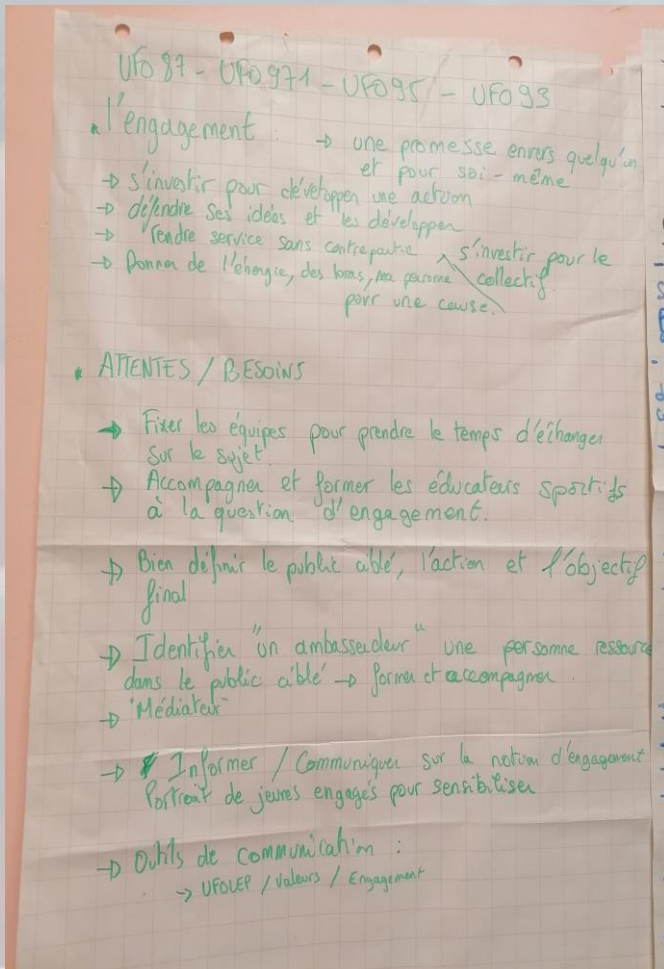 UFO 87 - UFO 971 - UFO 95 - UFO 93
• l'engagement : → une promesse envers quelqu'un
et pour soi-même
→ s'investir pour développer une action
→ défendre ses idées et les développer
→ rendre service sans contrepartie
→ Donner de l'énergie, des bras, ma personne
s'investir pour le
collectif
pour une cause.
• ATTENTES / BESOINS
→ Fixer les équipes pour prendre le temps d'échanger
sur le sujet
→ Accompagner et former les éducateurs sportifs
à la question d'engagement.
→ Bien définir le public ciblé, l'action et l'objectif
final
→ Identifier "un ambassadeur" une personne ressource
dans le public ciblé → former et accompagner.
→ "Médiateur"
→ Informer / Communiquer sur la notion d'engagement
Portrait de jeunes engagés pour sensibiliser
→ Outils de communication :
→ UFOLEP / Valeurs / Engagement